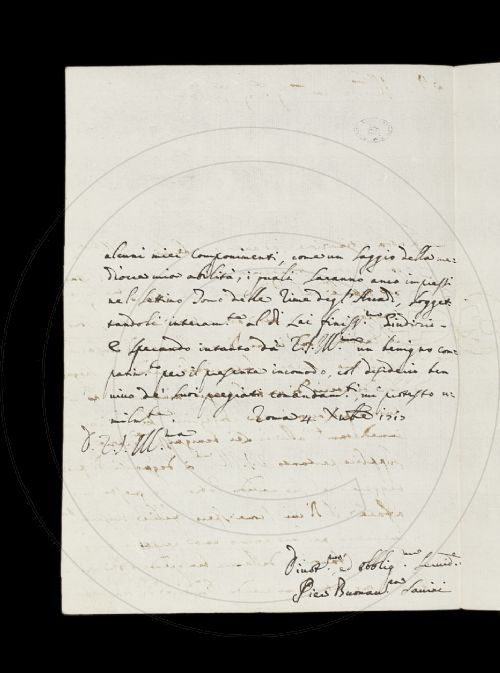 alcuni miei Componimenti, come un Saggio della me-
diocre mia abilità, i quali Saranno anco impressi
nel Settimo Tomo delle Rime degl' Arcadi, Sogget-
tandoli interam.te al di Lei finiss.mo Giudizio.
E Sperando intanto da V.S. Ill.ma un benigno com-
patim.to per il presente incomodo, col desiderio ben
vivo de' Suoi pregiati comandam.ti mi protesto u-
milm.te
Roma 4 Xbre 1717
D. V.S. Ill.ma
Divot.mo ed Obblig.mo Servid.e
Pier Buonav.